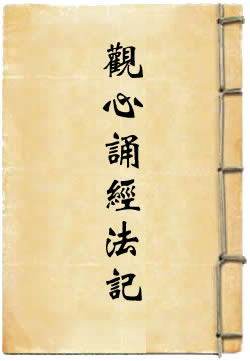 觀心誦經法記